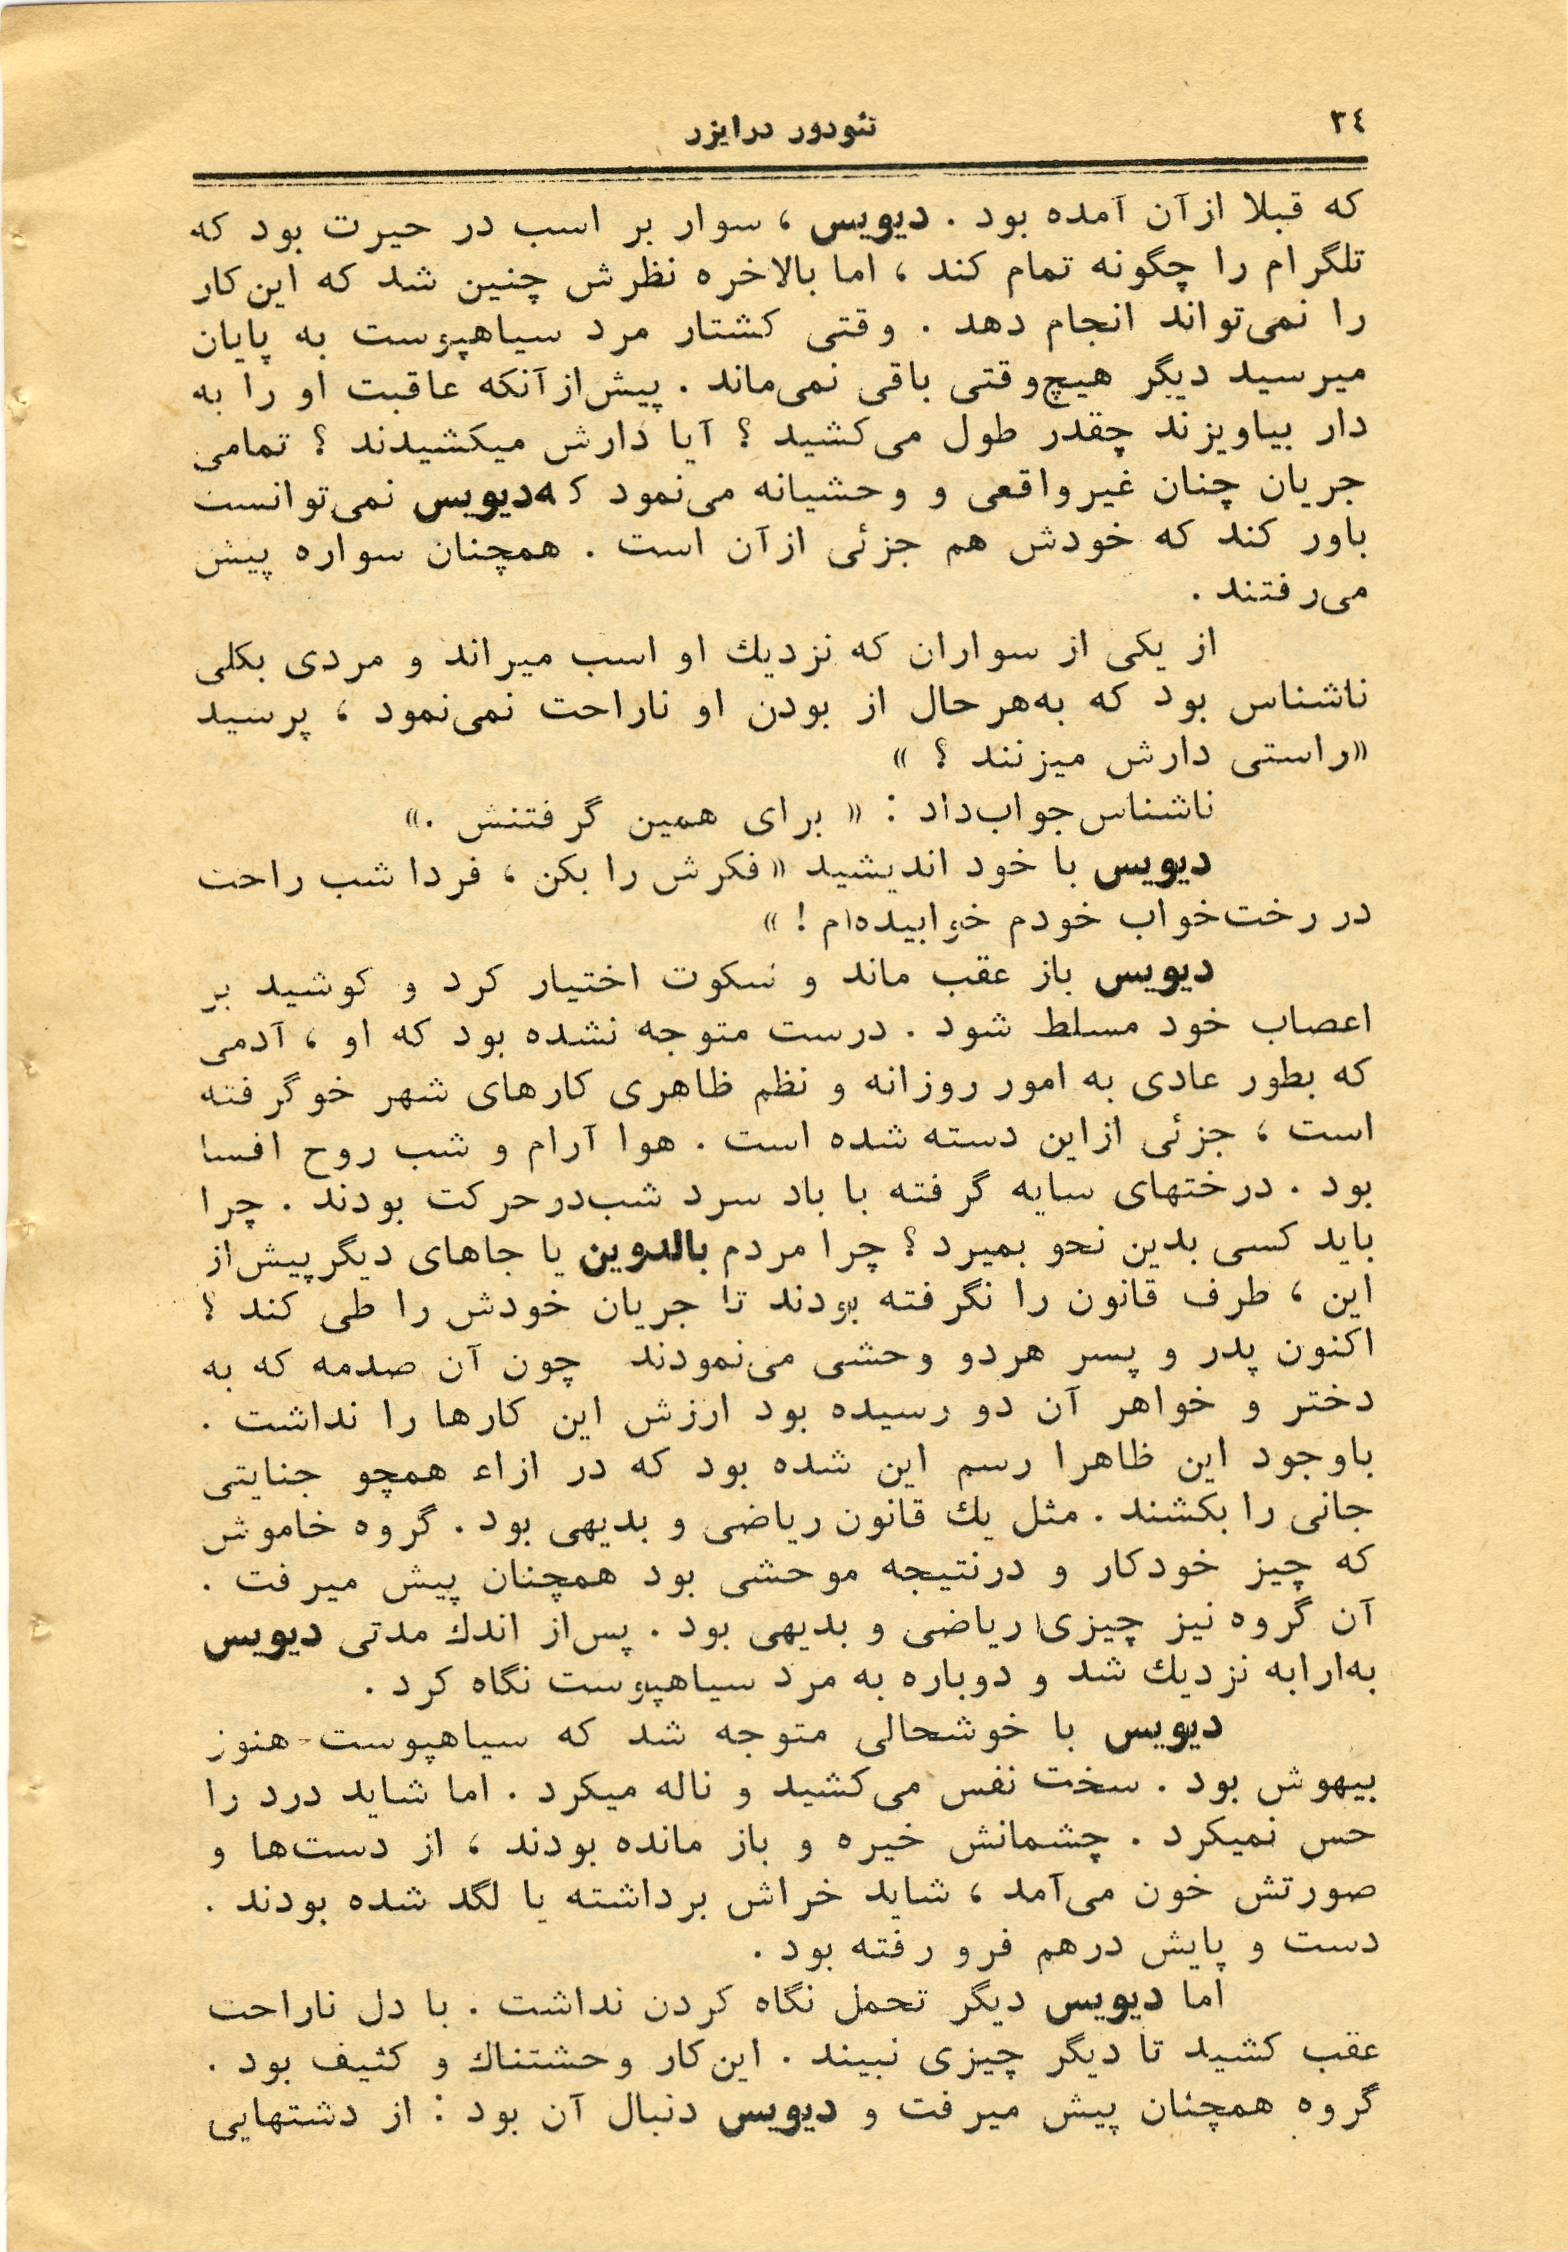 ۳٤
تئودور درایزر
که قبلا ازآن آمده بود . دیویس ، سوار بر اسب در حیرت بود که
تلگرام را چگونه تمام کند ، اما بالاخره نظرش چنین شد که این‌کار
را نمی‌تواند انجام دهد . وقتی کشتار مرد سیاهپوست به پایان
میرسید دیگر هیچ‌وقتی باقی نمی‌ماند . پیش‌ازآنکه عاقبت او را به
دار بیاویزند چقدر طول می‌کشید ؟ آیا دارش میکشیدند ؟ تمامی
جریان چنان غیرواقعی و وحشیانه می‌نمود که‌دیویس نمی‌توانست
باور کند که خودش هم جزئی ازآن است . همچنان سواره پیش
می‌رفتند .
از یکی از سواران که نزدیك او اسب میراند و مردی بکلی
ناشناس بود که به‌هرحال از بودن او ناراحت نمی‌نمود ، پرسید
«راستی دارش میزنند ؟ »
ناشناس‌جواب‌داد : « برای همین گرفتنش .»
دیویس با خود اندیشید «فکرش را بکن ، فردا شب راحت
در رخت‌خواب خودم خوابیده‌ام ! »
دیویس باز عقب ماند و سکوت اختیار کرد و کوشید بر
اعصاب خود مسلط شود . درست متوجه نشده بود که او ، آدمی
که بطور عادی به امور روزانه و نظم ظاهری کارهای شهر خوگرفته
است ، جزئی ازاین دسته شده است . هوا آرام و شب روح افسا
بود . درختهای سایه گرفته با باد سرد شب‌درحرکت بودند . چرا
باید کسی بدین نحو بمیرد ؟ چرا مردم بالدوین یا جاهای دیگرپیش‌از
این ، طرف قانون را نگرفته بودند تا جریان خودش را طی کند ؟
اکنون پدر و پسر هردو وحشی می‌نمودند چون آن صدمه که به
دختر و خواهر آن دو رسیده بود ارزش این کارها را نداشت .
باوجود این ظاهرا رسم این شده بود که در ازاء همچو جنایتی
جانی را بکشند . مثل یك قانون ریاضی و بدیهی بود . گروه خاموش
که چیز خودکار و درنتیجه موحشی بود همچنان پیش میرفت .
آن گروه نیز چیزی ریاضی و بدیهی بود . پس‌از اندك مدتی دیویس
به‌ارابه نزدیك شد و دوباره به مرد سیاهپوست نگاه کرد .
دیویس با خوشحالی متوجه شد که سیاهپوست هنوز
بیهوش بود . سخت نفس می‌کشید و ناله میکرد . اما شاید درد را
حس نمیکرد . چشمانش خیره و باز مانده بودند ، از دست‌ها و
صورتش خون می‌آمد ، شاید خراش برداشته یا لگد شده بودند .
دست و پایش درهم فرو رفته بود .
اما دیویس دیگر تحمل نگاه کردن نداشت . با دل ناراحت
عقب کشید تا دیگر چیزی نبیند . این‌کار وحشتناك و کثیف بود .
گروه همچنان پیش میرفت و دیویس دنبال آن بود : از دشتهایی